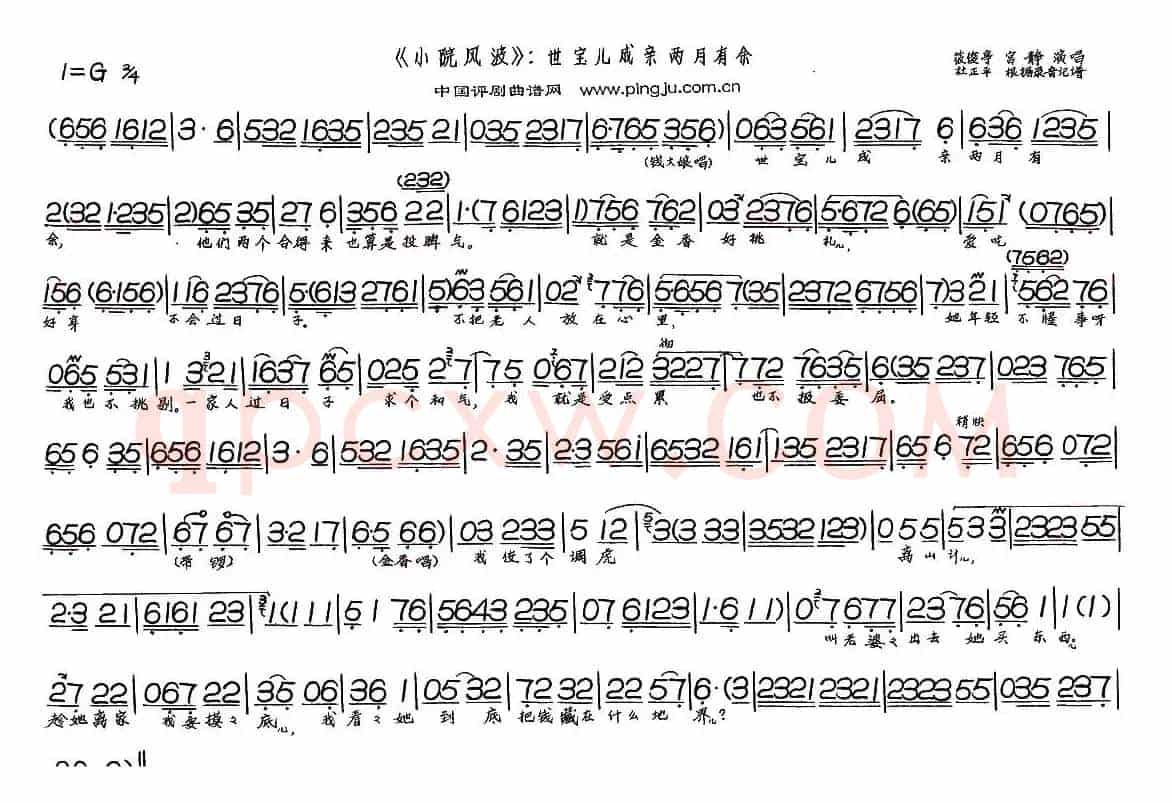 《小院风波》：世宝儿成亲两月有余
1=G 2/4
筱俊亭 宫静 演唱
杜正平 根据录音记谱
中国评剧曲谱网 www.pingju.com.cn
(656 1612 | 3· 6 | 532 1635 | 235 21 | 035 2317 | 6·765 356) | 063 561 | 2317 6 | 636 1235
(钱大娘唱) 世宝儿成 亲两月有
(232)
2(32 1·235 | 2)65 35 | 27 6 | 356 22 | 1·(7 6123 | 1)756 762 | 03 2376 | 5·672 6(65) | 151 (0765)
余, 他们两个合得来也算是投脾气。 就是金香好挑礼儿, 爱吃
(7562)
156 (6·156) | 116 2376 | 5·(613 2761 | 5)63 561 | 02 776 | 5656 7(35 | 2372 6756 | 7)3 21 | 562 76
好穿 不会过日子。 不把老人放在心里, 她年轻不懂事呀
065 531 | 1 321 | 1637 65 | 025 27 | 75 067 | 012 3227 | 772 7635 | 6(35 237 | 023 765
我也不挑剔。一家人过日子 求个和气, 我就是受点累 也不报委屈。
稍快
656 35 | 656 1612 | 3· 6 | 532 1635 | 2· 35 | 2·3 561 | 6532 161 | 135 2317 | 656 72 | 656 072
656 072 | 67 67 | 3·2 17 | 6·5 66) | 03 233 | 5 12 | 3(3 33 | 3532 123) | 0 55 | 533 | 2323 55
(带锣) (金香唱) 我使了个调虎 离山计儿,
2·3 21 | 6161 23 | 1(1 11 | 5 1 76 | 5643 235 | 07 6123 | 1·6 11) | 07 677 | 23 76 | 56 1 | 1(1)
叫老婆々出去她买东西儿
27 22 | 067 22 | 35 06 | 36 1 | 05 32 | 72 32 | 22 57 | 6·(3 | 2321 2321 | 2323 55 | 035 237
趁她离家我要摸々底儿, 我看々她到底把钱藏在什么地界儿?
qpcxw.COM